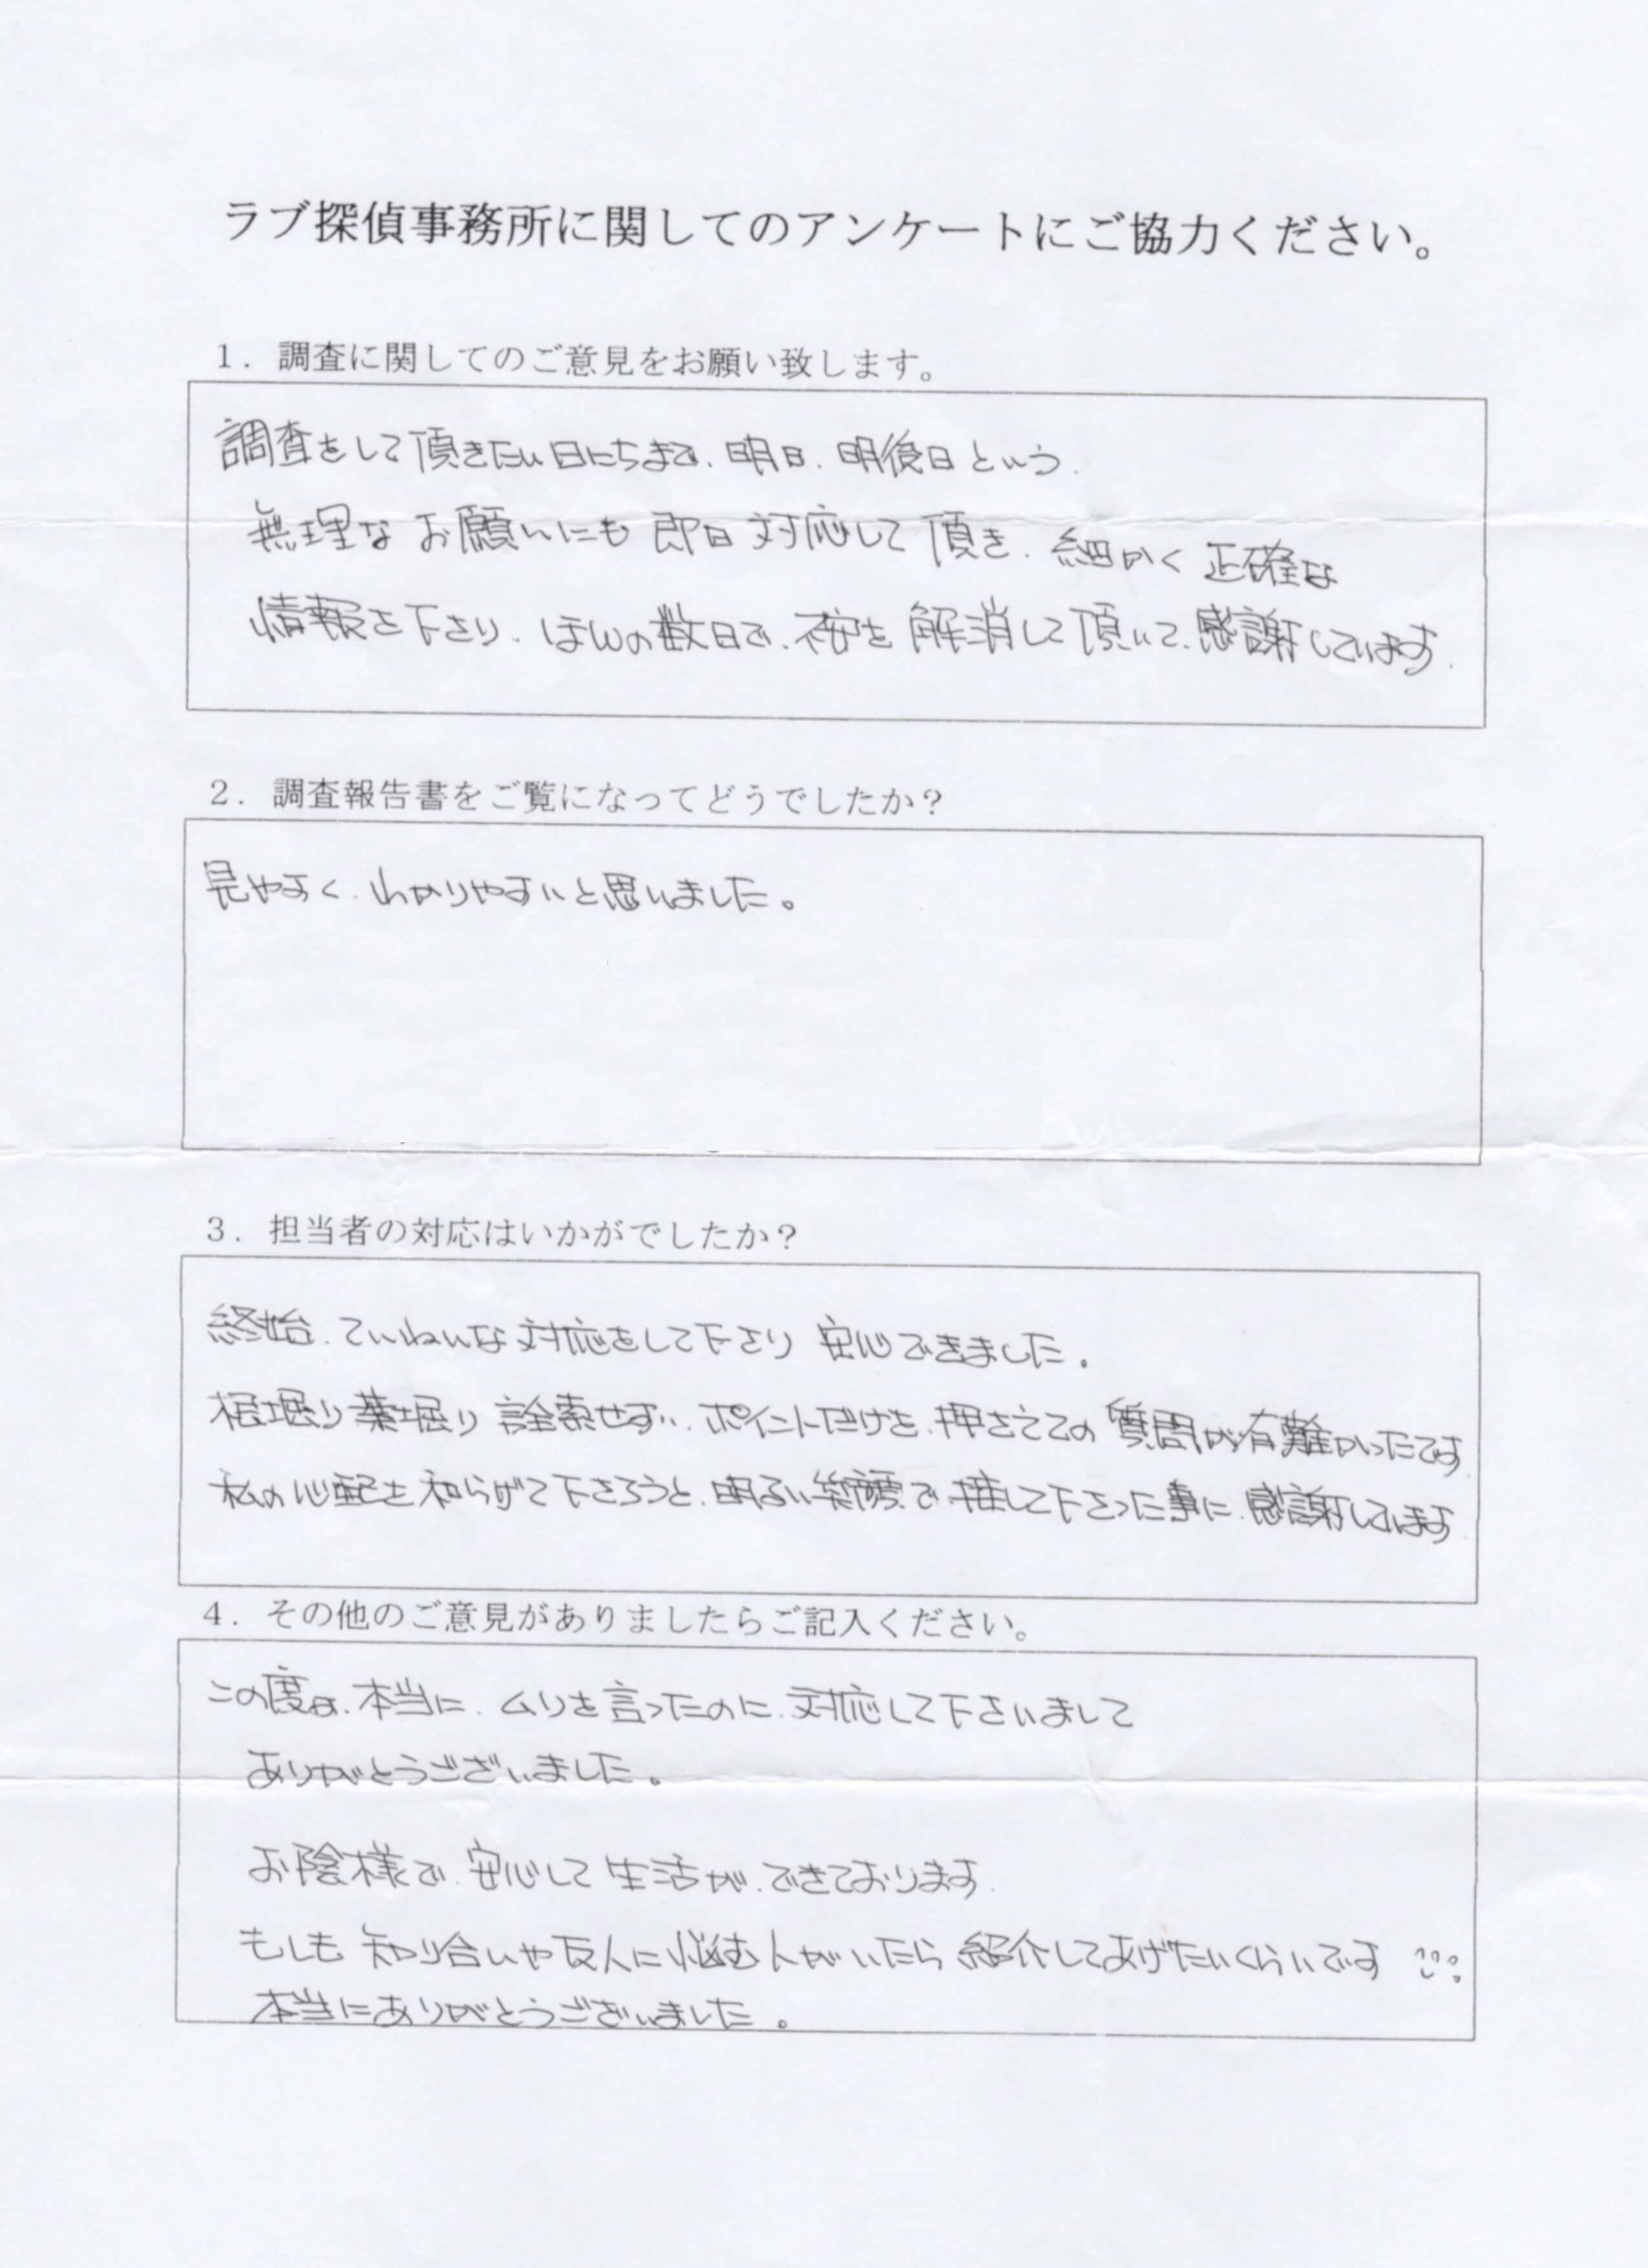 ラブ探偵事務所に関してのアンケートにご協力ください。
1．調査に関してのご意見をお願い致します。
調査をして頂きたい日にちまで、明日、明後日という
無理なお願いにも即日対応して頂き、細かく正確な
情報を下さり、ほんの数日で、不安を解消して頂いて、感謝しています。
2．調査報告書をご覧になってどうでしたか？
見やすく、わかりやすいと思いました。
3．担当者の対応はいかがでしたか？
終始、ていねいな対応をして下さり 安心できました。
根堀り葉堀り詮索せず、ポイントだけを、押さえての質問が有難かったです
私の心配を和らげて下さろうと、明るい笑顔で、接して下さった事に、感謝しています
4．その他のご意見がありましたらご記入ください。
この度は、本当に、ムリを言ったのに、対応して下さいまして
ありがとうございました。
お陰様で、安心して生活が、できております。
もしも 知り合いや友人に悩む人がいたら 紹介してあげたいくらいです
本当にありがとうございました。